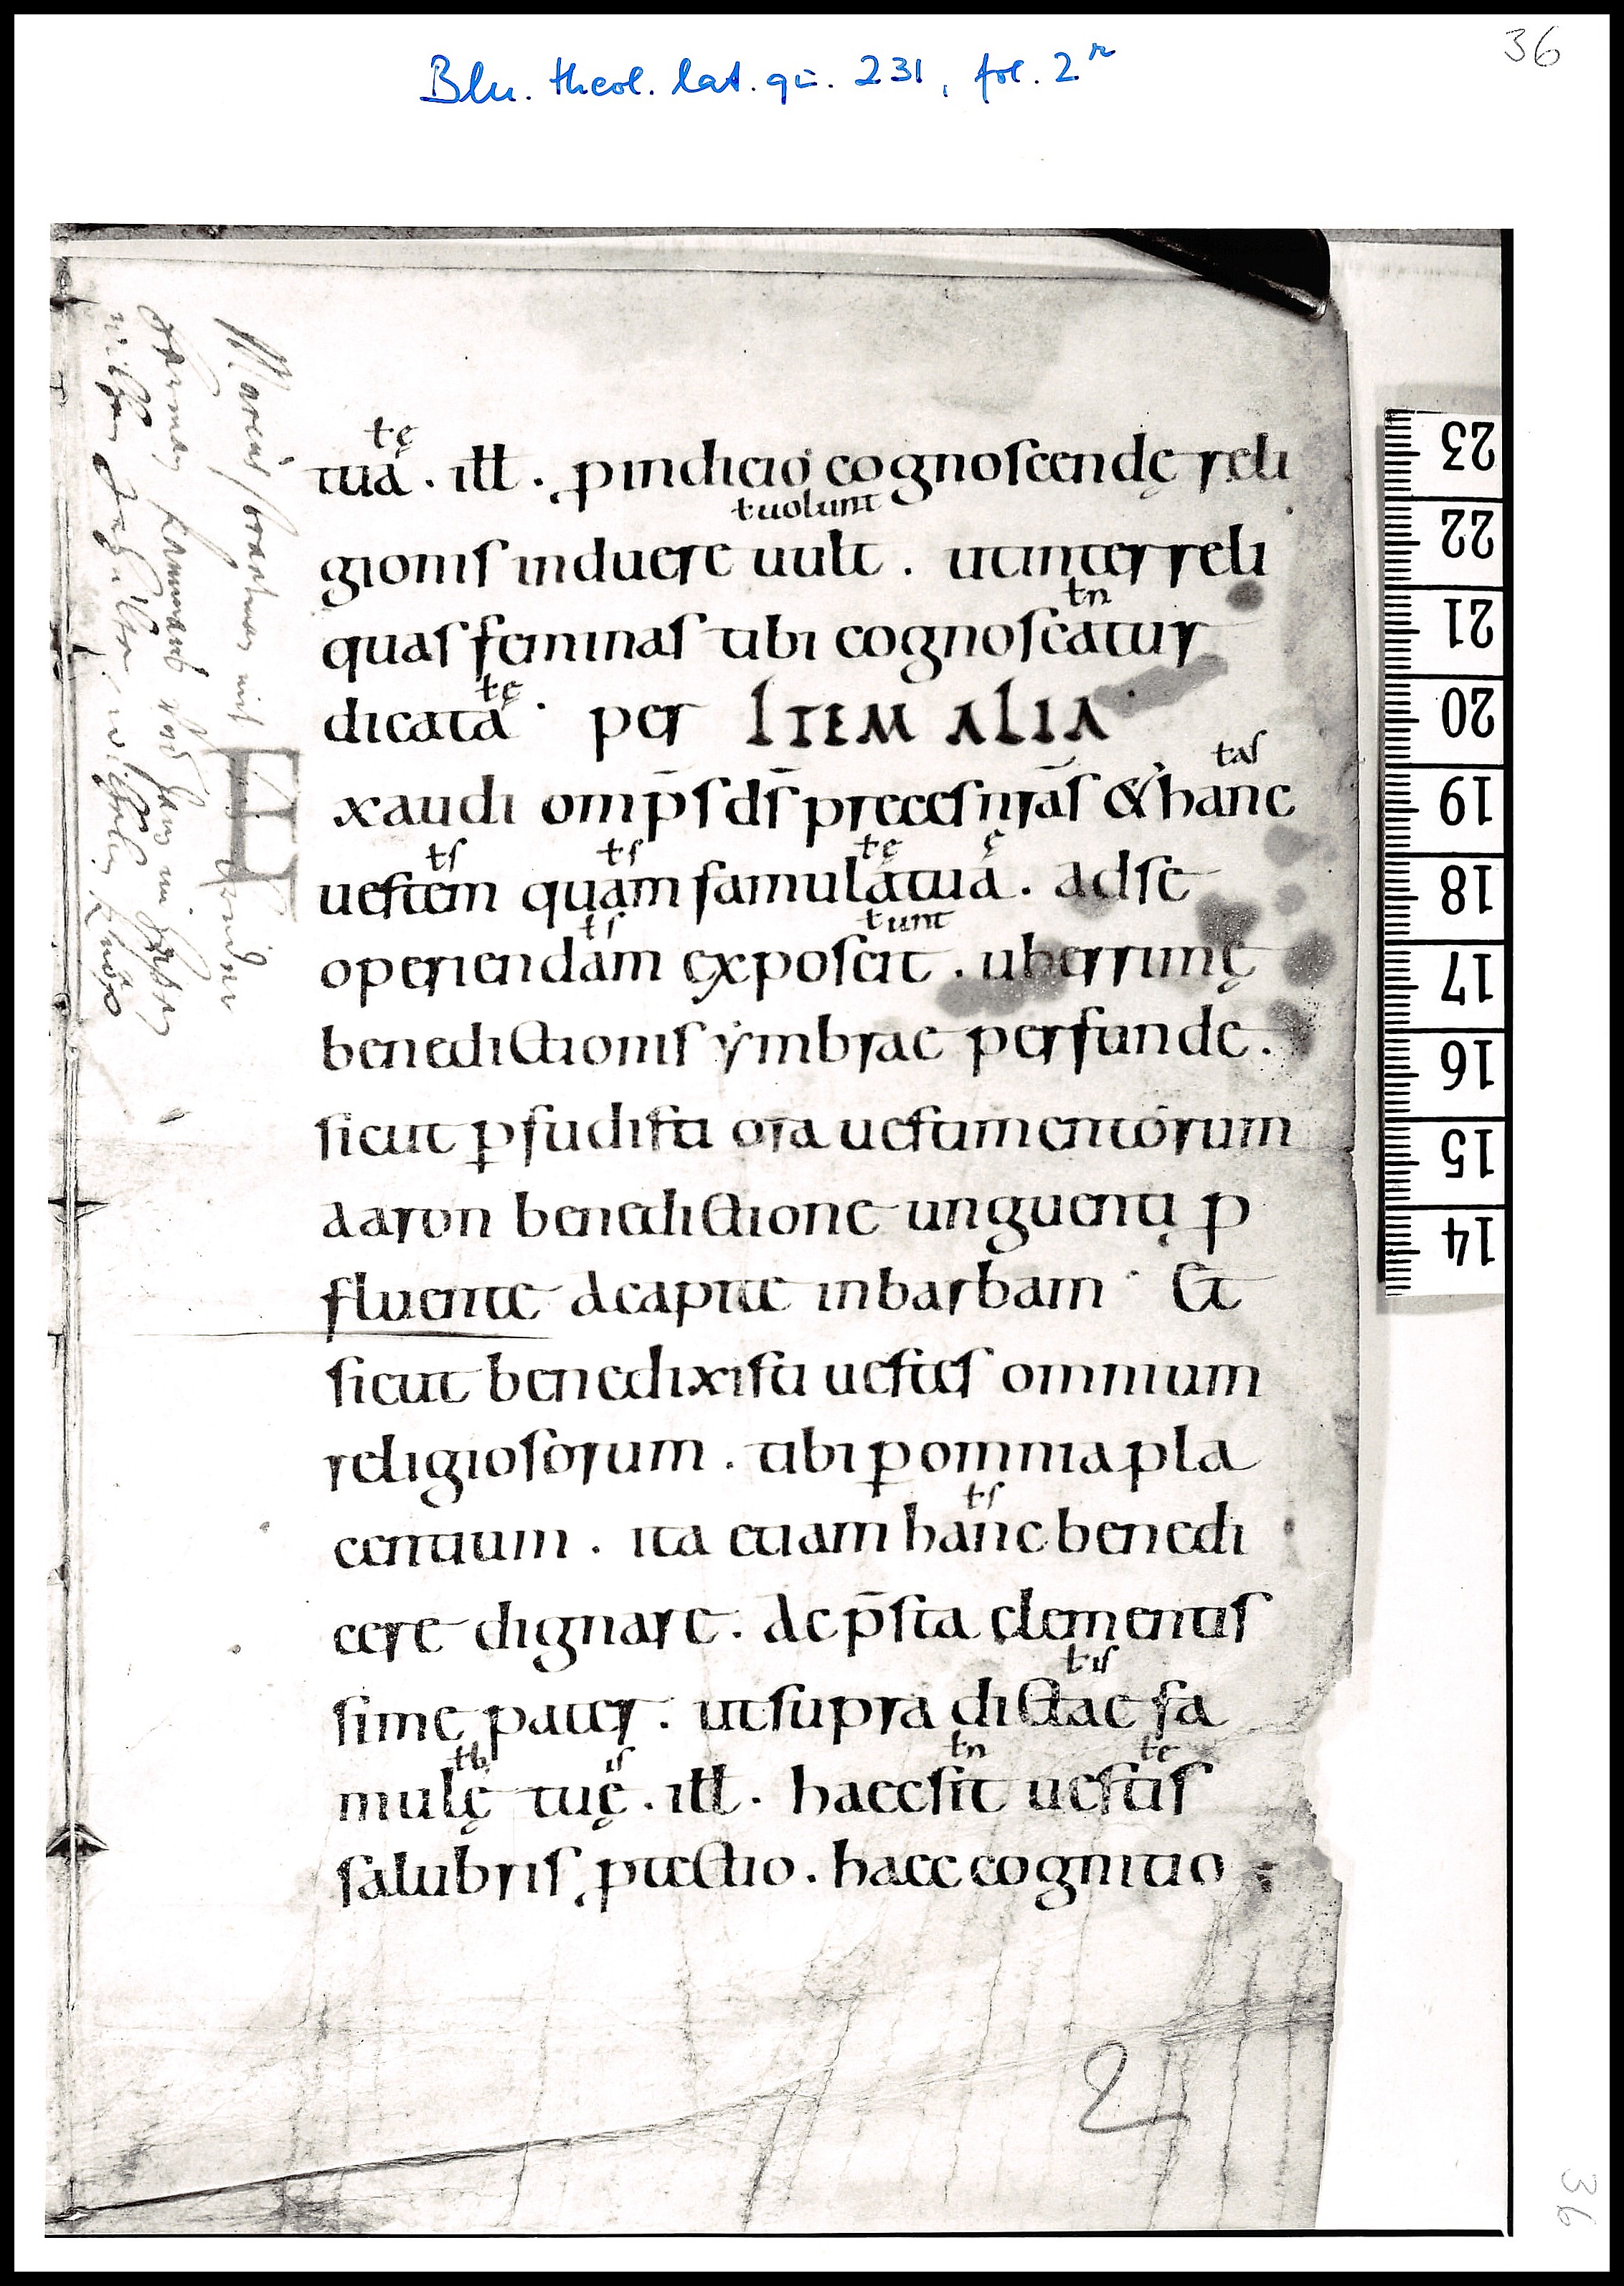 36
Bln. theol. lat. qu. 231, fol. 2r
tę
tua . ill . p indicio cognoscendę reli
t uolunt
gionis induere uult . ut inter reli
t n
quas feminas tibi cognoscatur
t ę
dicata · per ITEM ALIA
t as
Exaudi omp̄s ds̄ preces nr̄as & hanc
t s t s t ę ę
uestem quam famula tua . ad se
t s t unt
operiendam exposcit . uberrimę
benedictionis ẏmbrae perfunde .
sicut ꝑfudisti ora uestimentorum
aaron benedictione unguenti ꝓ
fluente acapite in barbam · Et
sicut benedixisti uestes omnium
religiosorum . tibi ꝑ omnia pla
t s
centium . ita etiam hanc benedi
cere dignare . ac p̄sta clementis
t is
sime pater . ut supra dictae fa
t b is t n t e
mulę tuę . ill . haec sit uestis
salubris ꝓtectio . haec cognitio
2
23
22
21
20
19
18
17
16
15
14
36